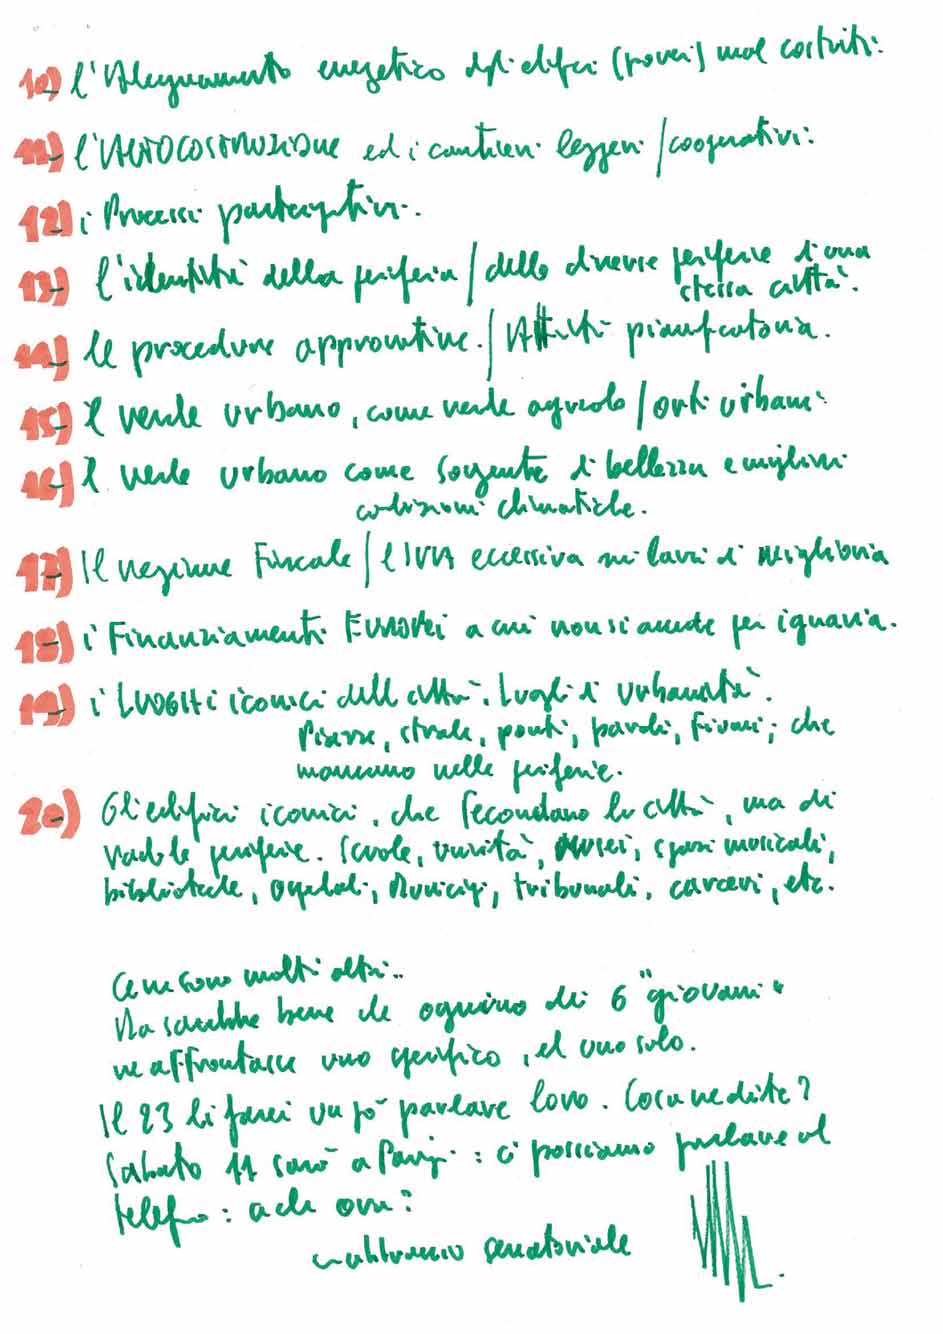 10) l'Adeguamento energetico degli edifici (poveri) mal costruiti.
11) l'AUTOCOSTRUZIONE ed i cantieri leggeri / cooperativi.
12) i Processi partecipativi.
13) l'identità della periferia / delle diverse periferie d'una
stessa città.
14) le procedure approvative. / Attività pianificatoria.
15) il verde urbano, come verde agricolo / orti urbani
16) il verde urbano come sorgente di bellezza e migliori
condizioni climatiche.
17) Il regime Fiscale / l'IVA eccessiva sui lavori di miglioria
18) i Finanziamenti Europei a cui non si accede per ignavia.
19) i LUOGHI iconici della città. Luoghi di urbanità.
Piazze, strade, ponti, parchi, fiumi; che
mancano nelle periferie.
20) Gli edifici iconici, che fecondano la città, ma di
rado le periferie. Scuole, università, Musei, spazi musicali,
biblioteche, ospedali, Municipi, tribunali, carceri, etc.
Ce ne sono molti altri..
Ma sarebbe bene che ognuno dei 6 "giovani"
ne affrontasse uno specifico, ed uno solo.
Il 23 li farei un pò parlare loro. Cosa ne dite?
Sabato 11 sarò a Parigi: ci possiamo parlare al
telefono: a che ora?
un abbraccio senatoriale